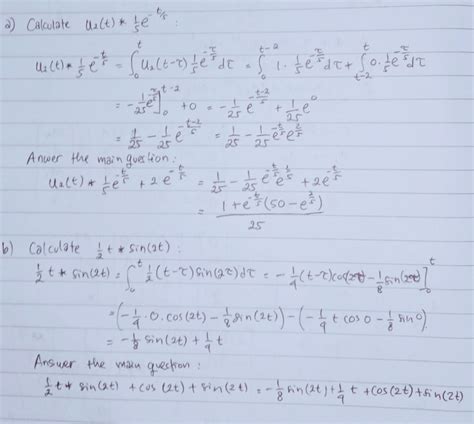 a) Calculate u₂(t) * 1/5 e^(-t/5) :
u₂(t) * 1/5 e^(-t/5) = ∫₀^t u₂(t-τ) 1/5 e^(-τ/5) dτ = ∫₀^(t-2) 1 · 1/5 e^(-τ/5) dτ + ∫_(t-2)^t 0 · 1/5 e^(-τ/5) dτ
= -1/25 e^(-τ/5) ]₀^(t-2) + 0 = -1/25 e^(-(t-2)/5) + 1/25 e^0
= 1/25 - 1/25 e^(-(t-2)/5) = 1/25 - 1/25 e^(-t/5) e^(2/5)
Answer the main question :
u₂(t) * 1/5 e^(-t/5) + 2e^(-t/5) = 1/25 - 1/25 e^(-t/5) e^(2/5) + 2e^(-t/5)
= (1 + e^(-t/5) (50 - e^(2/5))) / 25
b) Calculate 1/2 t * sin(2t) :
1/2 t * sin(2t) = ∫₀^t 1/2 (t-τ) sin(2τ) dτ = -1/4 (t-τ) cos(2τ) - 1/8 sin(2τ) ]₀^t
= (-1/4 · 0 · cos(2t) - 1/8 sin(2t)) - (-1/4 t cos 0 - 1/8 sin 0)
= -1/8 sin(2t) + 1/4 t
Answer the main question :
1/2 t * sin(2t) + cos(2t) + sin(2t) = -1/8 sin(2t) + 1/4 t + cos(2t) + sin(2t)